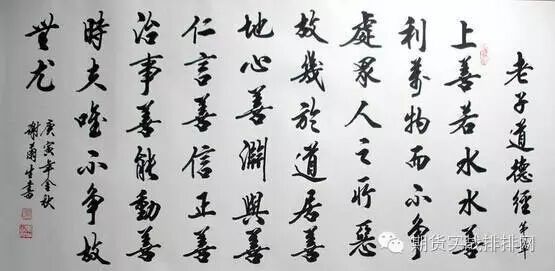 老子道德經
上善若水水善
利萬物而不争
處衆人之所惡
故幾於道居善
地心善淵與善
仁言善信正善
治事善能動善
時夫唯不争故
無尤
庚寅年金秋
谢生書
期货实战排排网